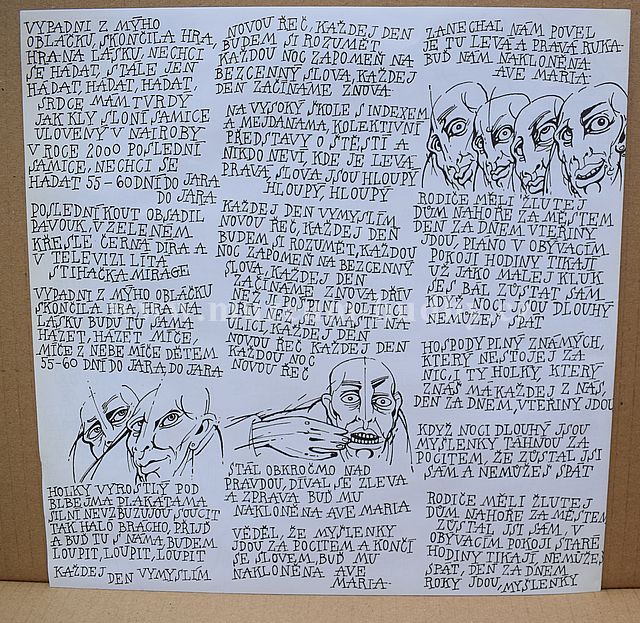 VYPADNI Z MÝHO
OBLÁČKU, SKONČILA HRA,
HRA NA LÁSKU, NECHCI
SE HÁDAT, STÁLE JEN
HÁDAT, HÁDAT, HÁDAT,
SRDCE MÁM TVRDÝ
JAK KLY SLONÍ SAMICE
ULOVENÝ V NAIROBY
V ROCE 2000 POSLEDNÍ
SAMICE, NECHCI SE
HÁDAT 55-60 DNÍ DO JARA
DO JARA
POSLEDNÍ KOUT OBSADIL
PAVOUK, V ZELENÉM
KŘESLE ČERNÁ DÍRA A
V TELEVIZI LÍTÁ
STÍHAČKA MIRAGE
VYPADNI Z MÝHO OBLÁČKU
SKONČILA HRA HRA NA
LÁSKU BUDU TU SAMA
HÁZET, HÁZET MÍČE,
MÍČE Z NEBE MÍČE DĚTEM
55-60 DNÍ DO JARA, DO JARA
HOLKY VYROSTLY POD
BLBEJMA PLAKÁTAMA
SILNÍ NEVZBUZUJOU SOUCIT
TAK HALÓ BRÁCHO, PŘIJĎ
A BUĎ TU S NÁMA, BUDEM
LOUPIT, LOUPIT, LOUPIT
KAŽDEJ DEN VYMÝŠLÍM
NOVOU ŘEČ, KAŽDEJ DEN
BUDEM SI ROZUMĚT
KAŽDOU NOC ZAPOMEŇ NA
BEZCENNÝ SLOVA, KAŽDEJ
DEN ZAČÍNÁME ZNOVA
NA VYSOKÝ ŠKOLE S INDEXEM
A MEJDANAMA, KOLEKTIVNÍ
PŘEDSTAVY O ŠTĚSTÍ A
NIKDO NEVÍ, KDE JE LEVÁ
PRAVÁ, SLOVA JSOU HLOUPÝ
HLOUPÝ, HLOUPÝ
KAŽDEJ DEN VYMÝŠLÍM
NOVOU ŘEČ, KAŽDEJ DEN
BUDEM SI ROZUMĚT, KAŽDOU
NOC ZAPOMEŇ NA BEZCENNÝ
SLOVA, KAŽDEJ DEN
ZAČÍNÁME ZNOVA, DŘÍV
NEŽ JI POSPINÍ POLITICI
DŘÍV NEŽ SE UMASTÍ NA
ULICI, KAŽDEJ DEN
NOVOU ŘEČ KAŽDEJ DEN
KAŽDOU NOC
NOVOU ŘEČ
STÁL OBKROČMO NAD
PRAVDOU, DÍVAL SE ZLEVA
A ZPRAVA BUĎ MU
NAKLONĚNA AVE MARIA
VĚDĚL, ŽE MYŠLENKY
JDOU ZA POCITEM A KONČÍ
SE SLOVEM, BUĎ MU
NAKLONĚNA AVE
MARIA
ZANECHAL NÁM POVEL
JE TU LEVÁ A PRAVÁ RUKA
BUĎ NÁM NAKLONĚNA
AVE MARIA
RODIČE MĚLI ŽLUTEJ
DŮM NAHOŘE ZA MĚSTEM
DEN ZA DNEM VTEŘINY
JDOU, PIÁNO V OBÝVACÍM
POKOJI HODINY TIKAJÍ
UŽ JAKO MALEJ KLUK
SES BÁL ZŮSTAT SÁM
KDYŽ NOCI JSOU DLOUHÝ
NEMŮŽEŠ SPÁT
HOSPODY PLNÝ ZNÁMÝCH,
KTERÝ NESTOJEJ ZA
NIC, I TY HOLKY, KTERÝ
ZNÁŠ MÁ KAŽDEJ Z NÁS,
DEN ZA DNEM, VTEŘINY JDOU
KDYŽ NOCI DLOUHÝ JSOU
MYŠLENKY TÁHNOU ZA
POCITEM, ŽE ZŮSTAL JSI
SÁM A NEMŮŽEŠ SPÁT
RODIČE MĚLI ŽLUTEJ
DŮM NAHOŘE ZA MĚSTEM
ZŮSTAL JSI SÁM, V
OBÝVACÍM POKOJI STARÉ
HODINY TIKAJÍ, NEMŮŽEŠ
SPÁT, DEN ZA DNEM
ROKY JDOU, MYŠLENKY